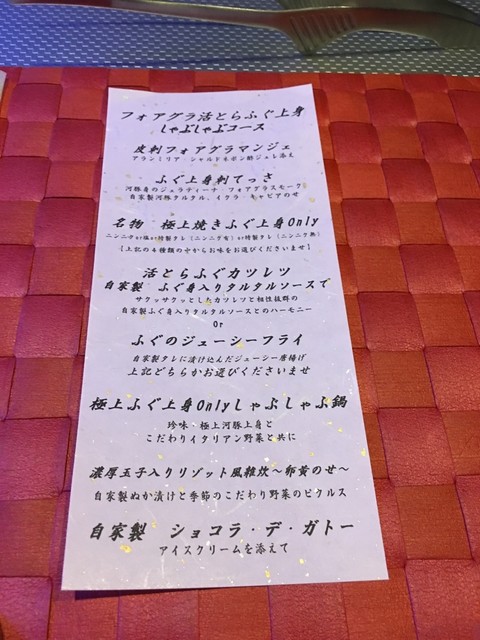 フォアグラ活とらふぐ上身
しゃぶしゃぶコース
皮刺フォアグラマンジェ
アランミリア・シャルドネポン酢ジュレ添え
ふぐ上身刺てっさ
河豚身のジェラティーナ フォアグラスモーク
自家製河豚タルタル、イクラ・キャビアのせ
名物 極上焼きふぐ上身Only
ニンニクor塩or特製タレ(ニンニク有)or特製タレ(ニンニク無)
【上記の4種類の中からお味をお選びくださいませ】
活とらふぐカツレツ
自家製 ふぐ身入りタルタルソースで
サクッサクッとしたカツレツと相性抜群の
自家製ふぐ身入りタルタルソースとのハーモニー
Or
ふぐのジューシーフライ
自家製タレに漬け込んだジューシー唐揚げ
上記どちらかお選びくださいませ
極上ふぐ上身Onlyしゃぶしゃぶ鍋
珍味・極上河豚上身と
こだわりイタリアン野菜と共に
濃厚玉子入りリゾット風雑炊~卵黄のせ~
自家製ぬか漬けと季節のこだわり野菜のピクルス
自家製 ショコラ・デ・ガトー
アイスクリームを添えて